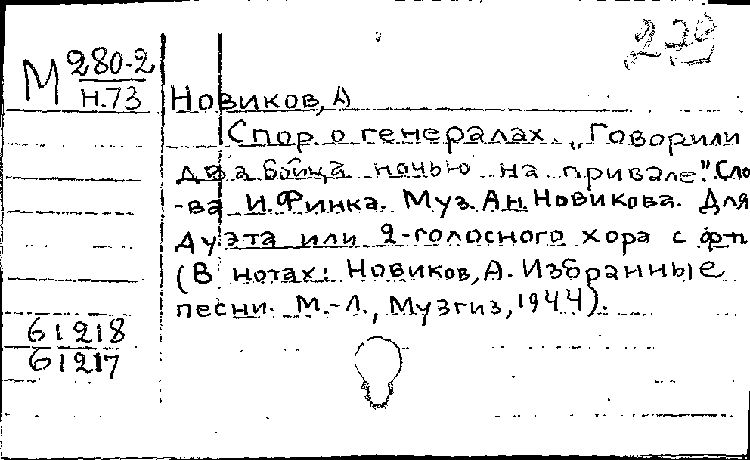 229
М 280-2
Н.73
Новиков, А
Спор о генералах. „Говорили
два бойца ночью на привале". Сло
-ва И. Финка. Муз. Ан. Новикова. Для
дуэта или 2-голосного хора с ф-п
(В нотах: Новиков, А. Избранные
песни. М.-Л., Музгиз, 1944).
61218
61217